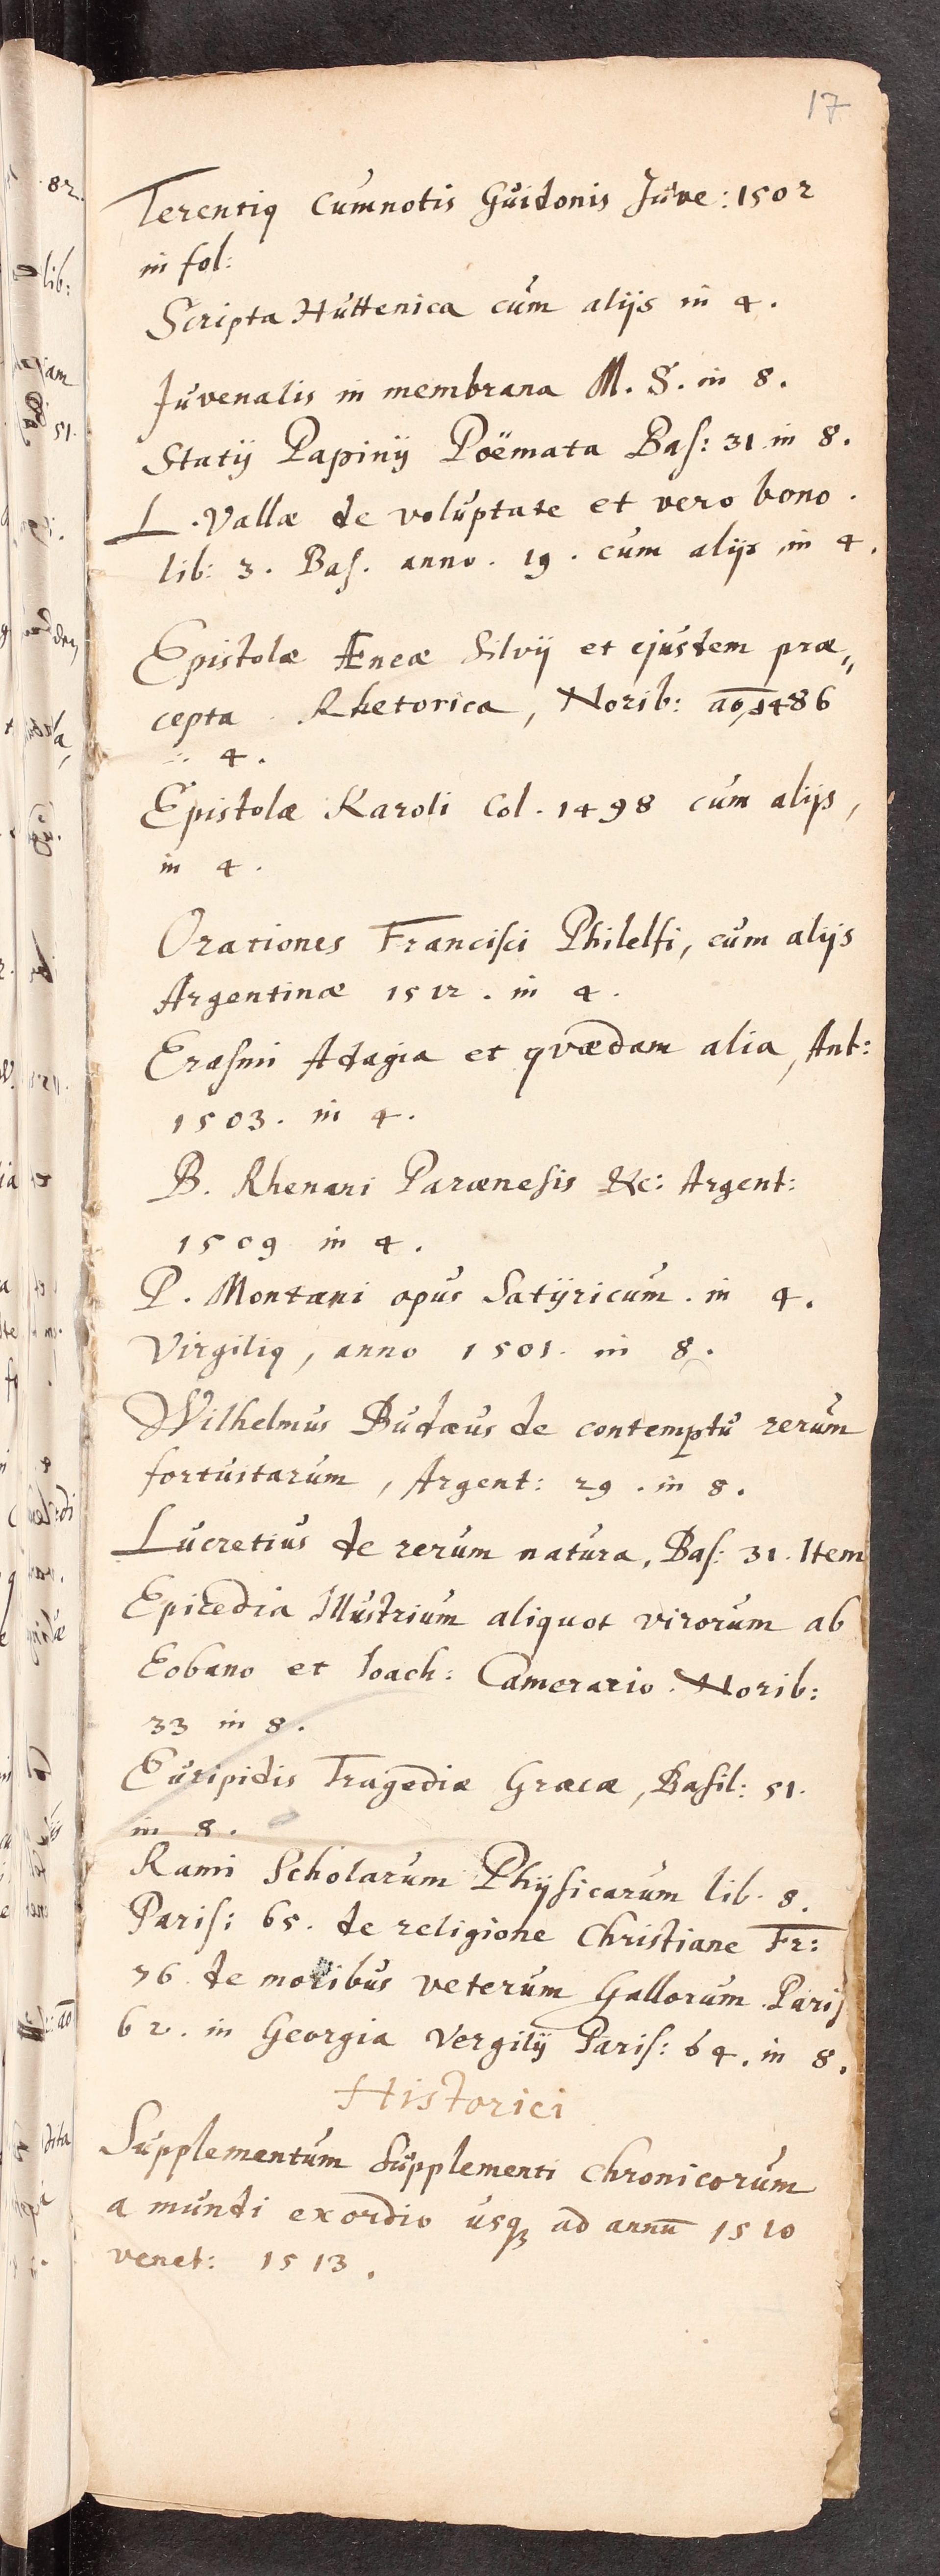 17
Terentiq cumnotis Guidonis Juve: 1502
in fol:
Scripta Huttenica cum alijs in 4.
Juvenalis in membrana M. S. in 8.
Statij Papinij Poëmata Bas: 31 in 8.
L. Vallæ de voluptate et vero bono.
lib: 3. Bas. anno. 19. cum alijs in 4.
Epistolæ Æneæ Silvij et ejusdem præ„
cepta Rhetorica, Norib: ao, 1486
in 4.
Epistolæ Karoli Col. 1498 cum alijs,
in 4.
Orationes Francisci Philelfi, cum alijs
Argentinæ 1512. in 4.
Erasmi Adagia et quædam alia, Ant:
1503. in 4.
B. Rhenani Parænesis &c: Argent:
1509 in 4.
P. Montani opus Satÿricum. in 4.
Virgiliq, anno 1501. in 8.
Wilhelmus Budæus de contemptu rerum
fortuitarum, Argent: 29. in 8.
Lucretius de rerum natura, Bas: 31. Item
Epicedia Illustrium aliquot virorum ab
Eobano et Ioach: Camerario. Norib:
33 in 8.
Euripidis Tragediæ Græcæ, Basil: 51.
in 8.
Rami Scholarum Phÿsicarum lib. 8.
Paris: 65. de religione Christiane Fr:
76 de moribus veterum Gallorum Paris
62. in Georgia Vergilij Paris: 64. in 8.
Historici
Supplementum Supplementi Chronicorum
a mundi exordio usq3 ad annū 1510
venet: 1513.